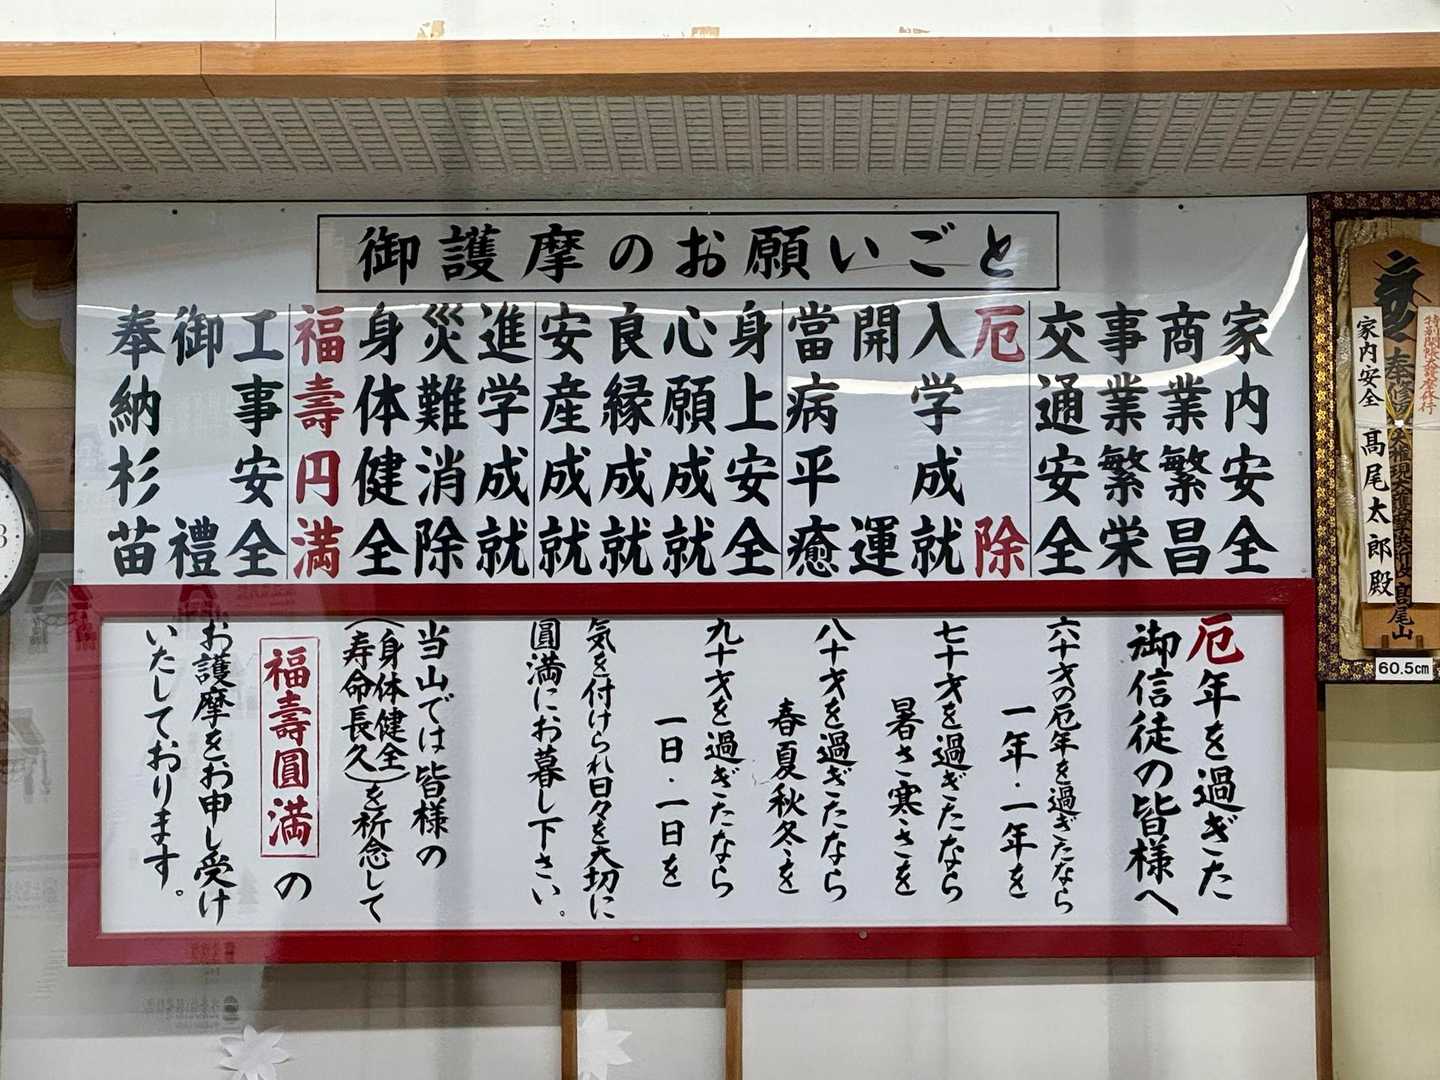 御護摩のお願いごと
家内安全
商業繁昌
事業繁栄
交通安全
厄除
入学成就
開運
當病平癒
身上安全
心願成就
良縁成就
安産成就
進学成就
災難消除
身体健全
福壽円満
工事安全
御禮
奉納杉苗
厄年を過ぎた
御信徒の皆様へ
六十才の厄年を過ぎたなら
一年・一年を
七十才を過ぎたなら
暑さ寒さを
八十才を過ぎたなら
春夏秋冬を
九十才を過ぎたなら
一日・一日を
気を付けられ日々を大切に
圓満にお暮し下さい。
当山では皆様の
(身体健全
寿命長久)を祈念して
福壽圓満の
お護摩をお申し受け
いたしております。
家内安全 髙尾太郎殿
髙尾山
60.5cm